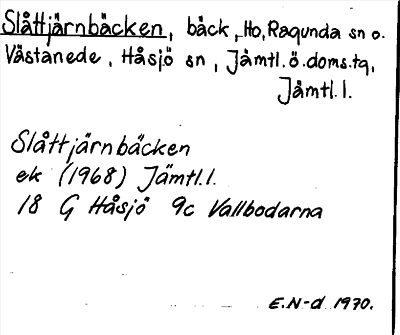 Slåttjärnbäcken, bäck, Ho, Ragunda sn o.
Västanede, Håsjö sn, Jämtl. ö. doms. tg,
Jämtl. l.
Slåttjärnbäcken
ek (1968) Jämtl. l.
18 G Håsjö 9c Vallbodarna
E. N-d 1970.